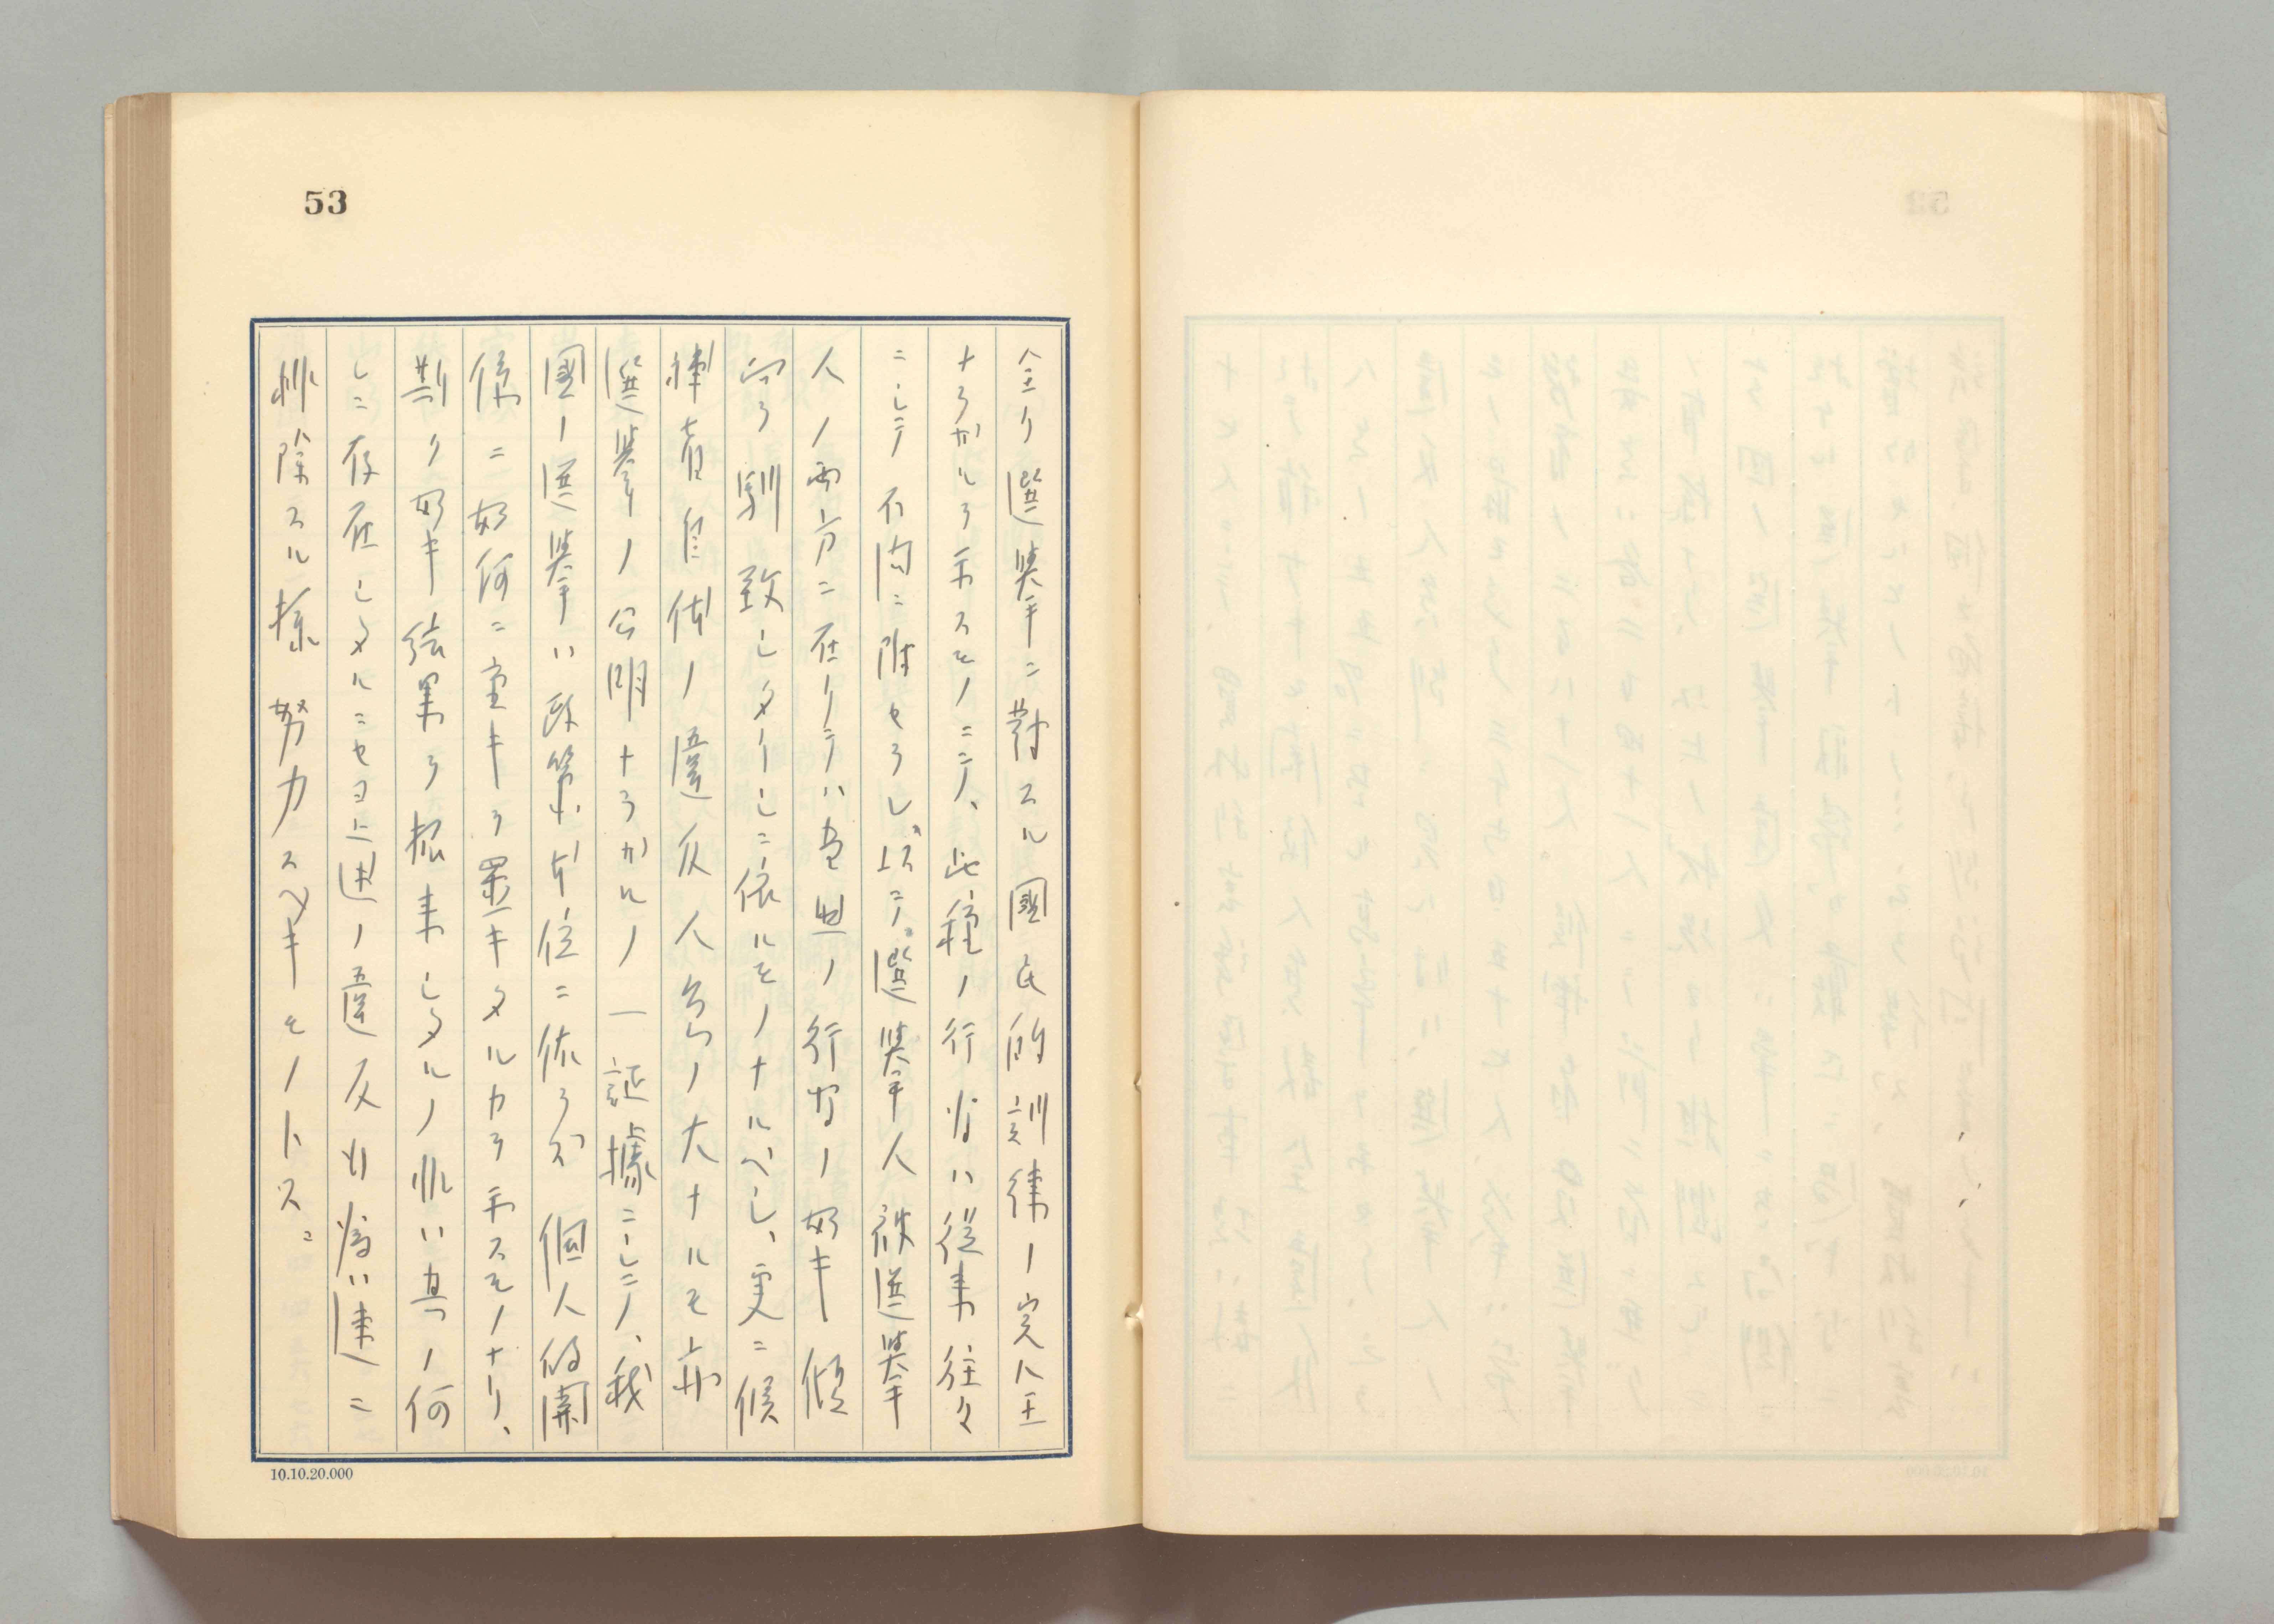 53
全ク選挙ニ対スル國民的訓練ノ完全
ナラザルヲ示スモノニシテ、此種ノ行為ハ従来往々
ニシテ不問ニ附セラレ、以テ選挙人被選挙
人ノ両方ニ在リテハ普通ノ行為ノ如キ傾
向ヲ馴致シタリシニ依ルモノナルベシ、更ニ候
補者自体ノ違反人員ノ大ナルモ亦
選挙ノ公明ナラザルノ一証據ニシテ、我
國ノ選挙ハ政策本位ニ依ラズ個人的関
係ニ如何ニ重キヲ置キタルカヲ示スモノナリ、
斯ク如キ結果ヲ招来シタルノ罪ハ其ノ何
レニ存在シタルニセヨ上述ノ違反行為ハ速ニ
排除スル様努力スベキモノトス、
10.10.20.000